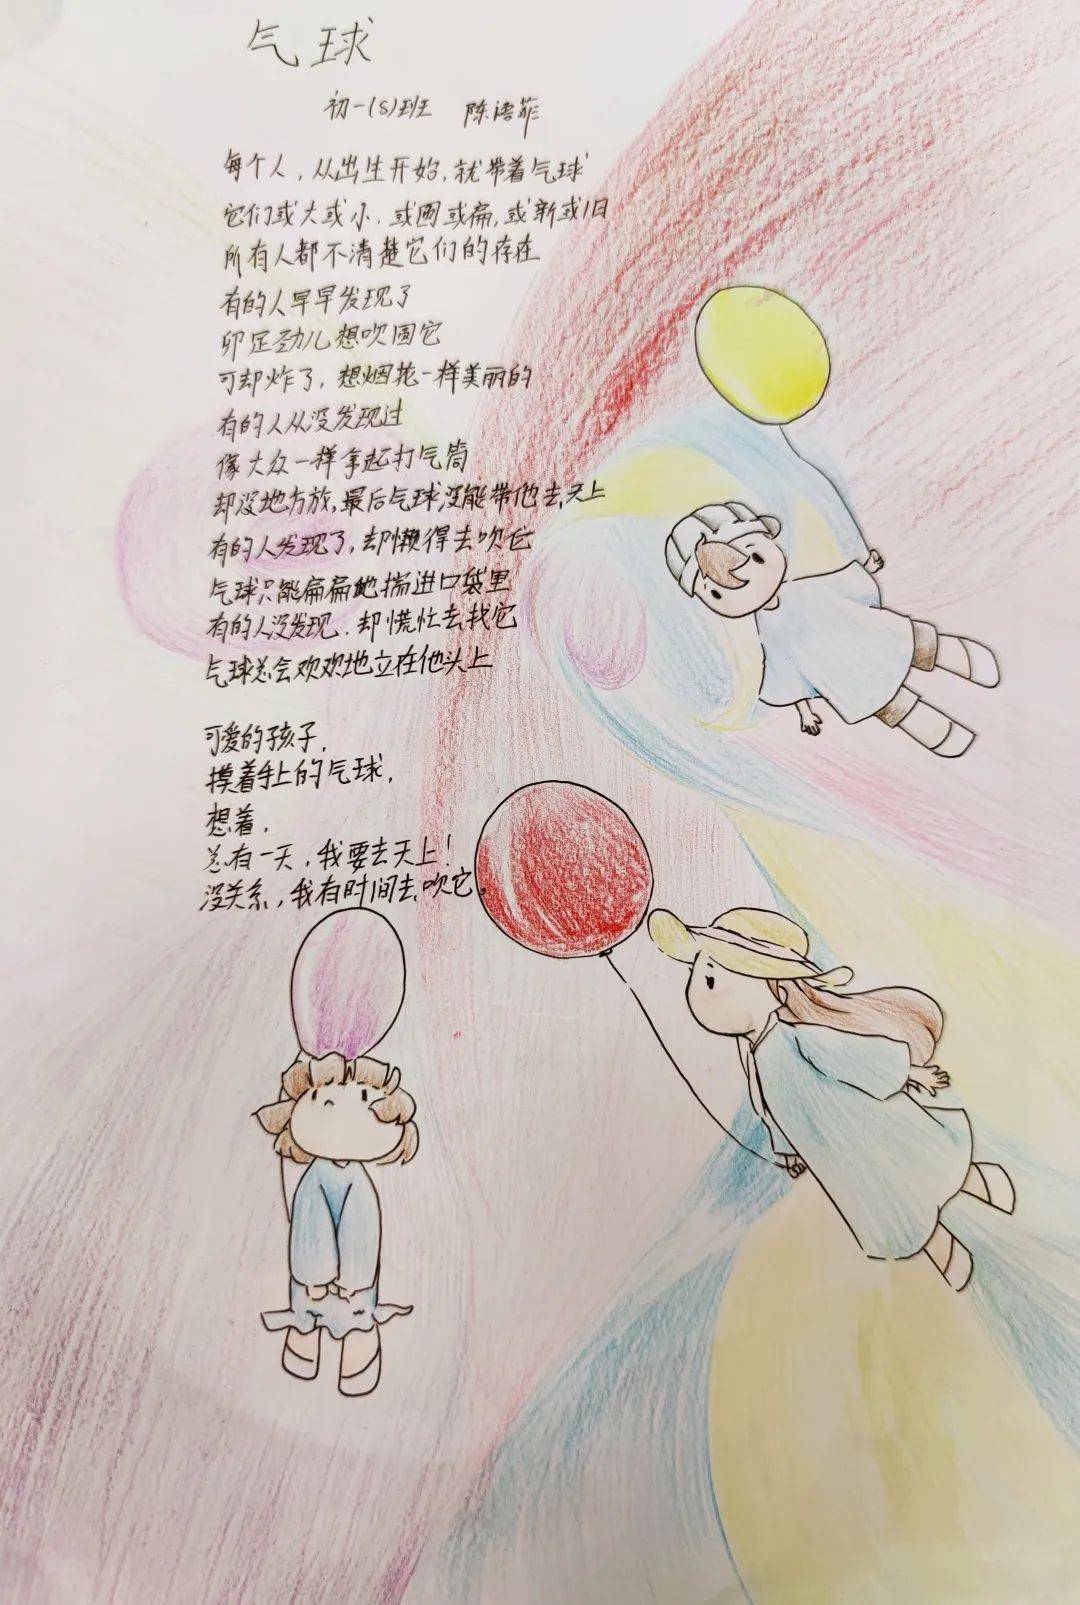 气球
初一(5)班 陈语菲
每个人，从出生开始，就带着气球
它们或大或小，或圆或扁，或新或旧
所有人都不清楚它们的存在
有的人早早发现了
卯足劲儿想吹圆它
可却炸了，想烟花一样美丽的
有的人从没发现过
像大众一样拿起打气筒
却没地方放，最后气球没能带他去天上
有的人发现了，却懒得去吹它
气球只能扁扁地揣进口袋里
有的人没发现，却慌忙去找它
气球总会欢欢地立在他头上
可爱的孩子，
摸着手上的气球，
想着，
总有一天，我要去天上！
没关系，我有时间去吹它。